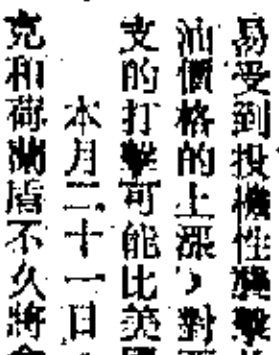 易受到投機性襲擊
油價格的上漲,對
支的打擊可能比美國
本月二十一日
克和荷蘭盾不久將會